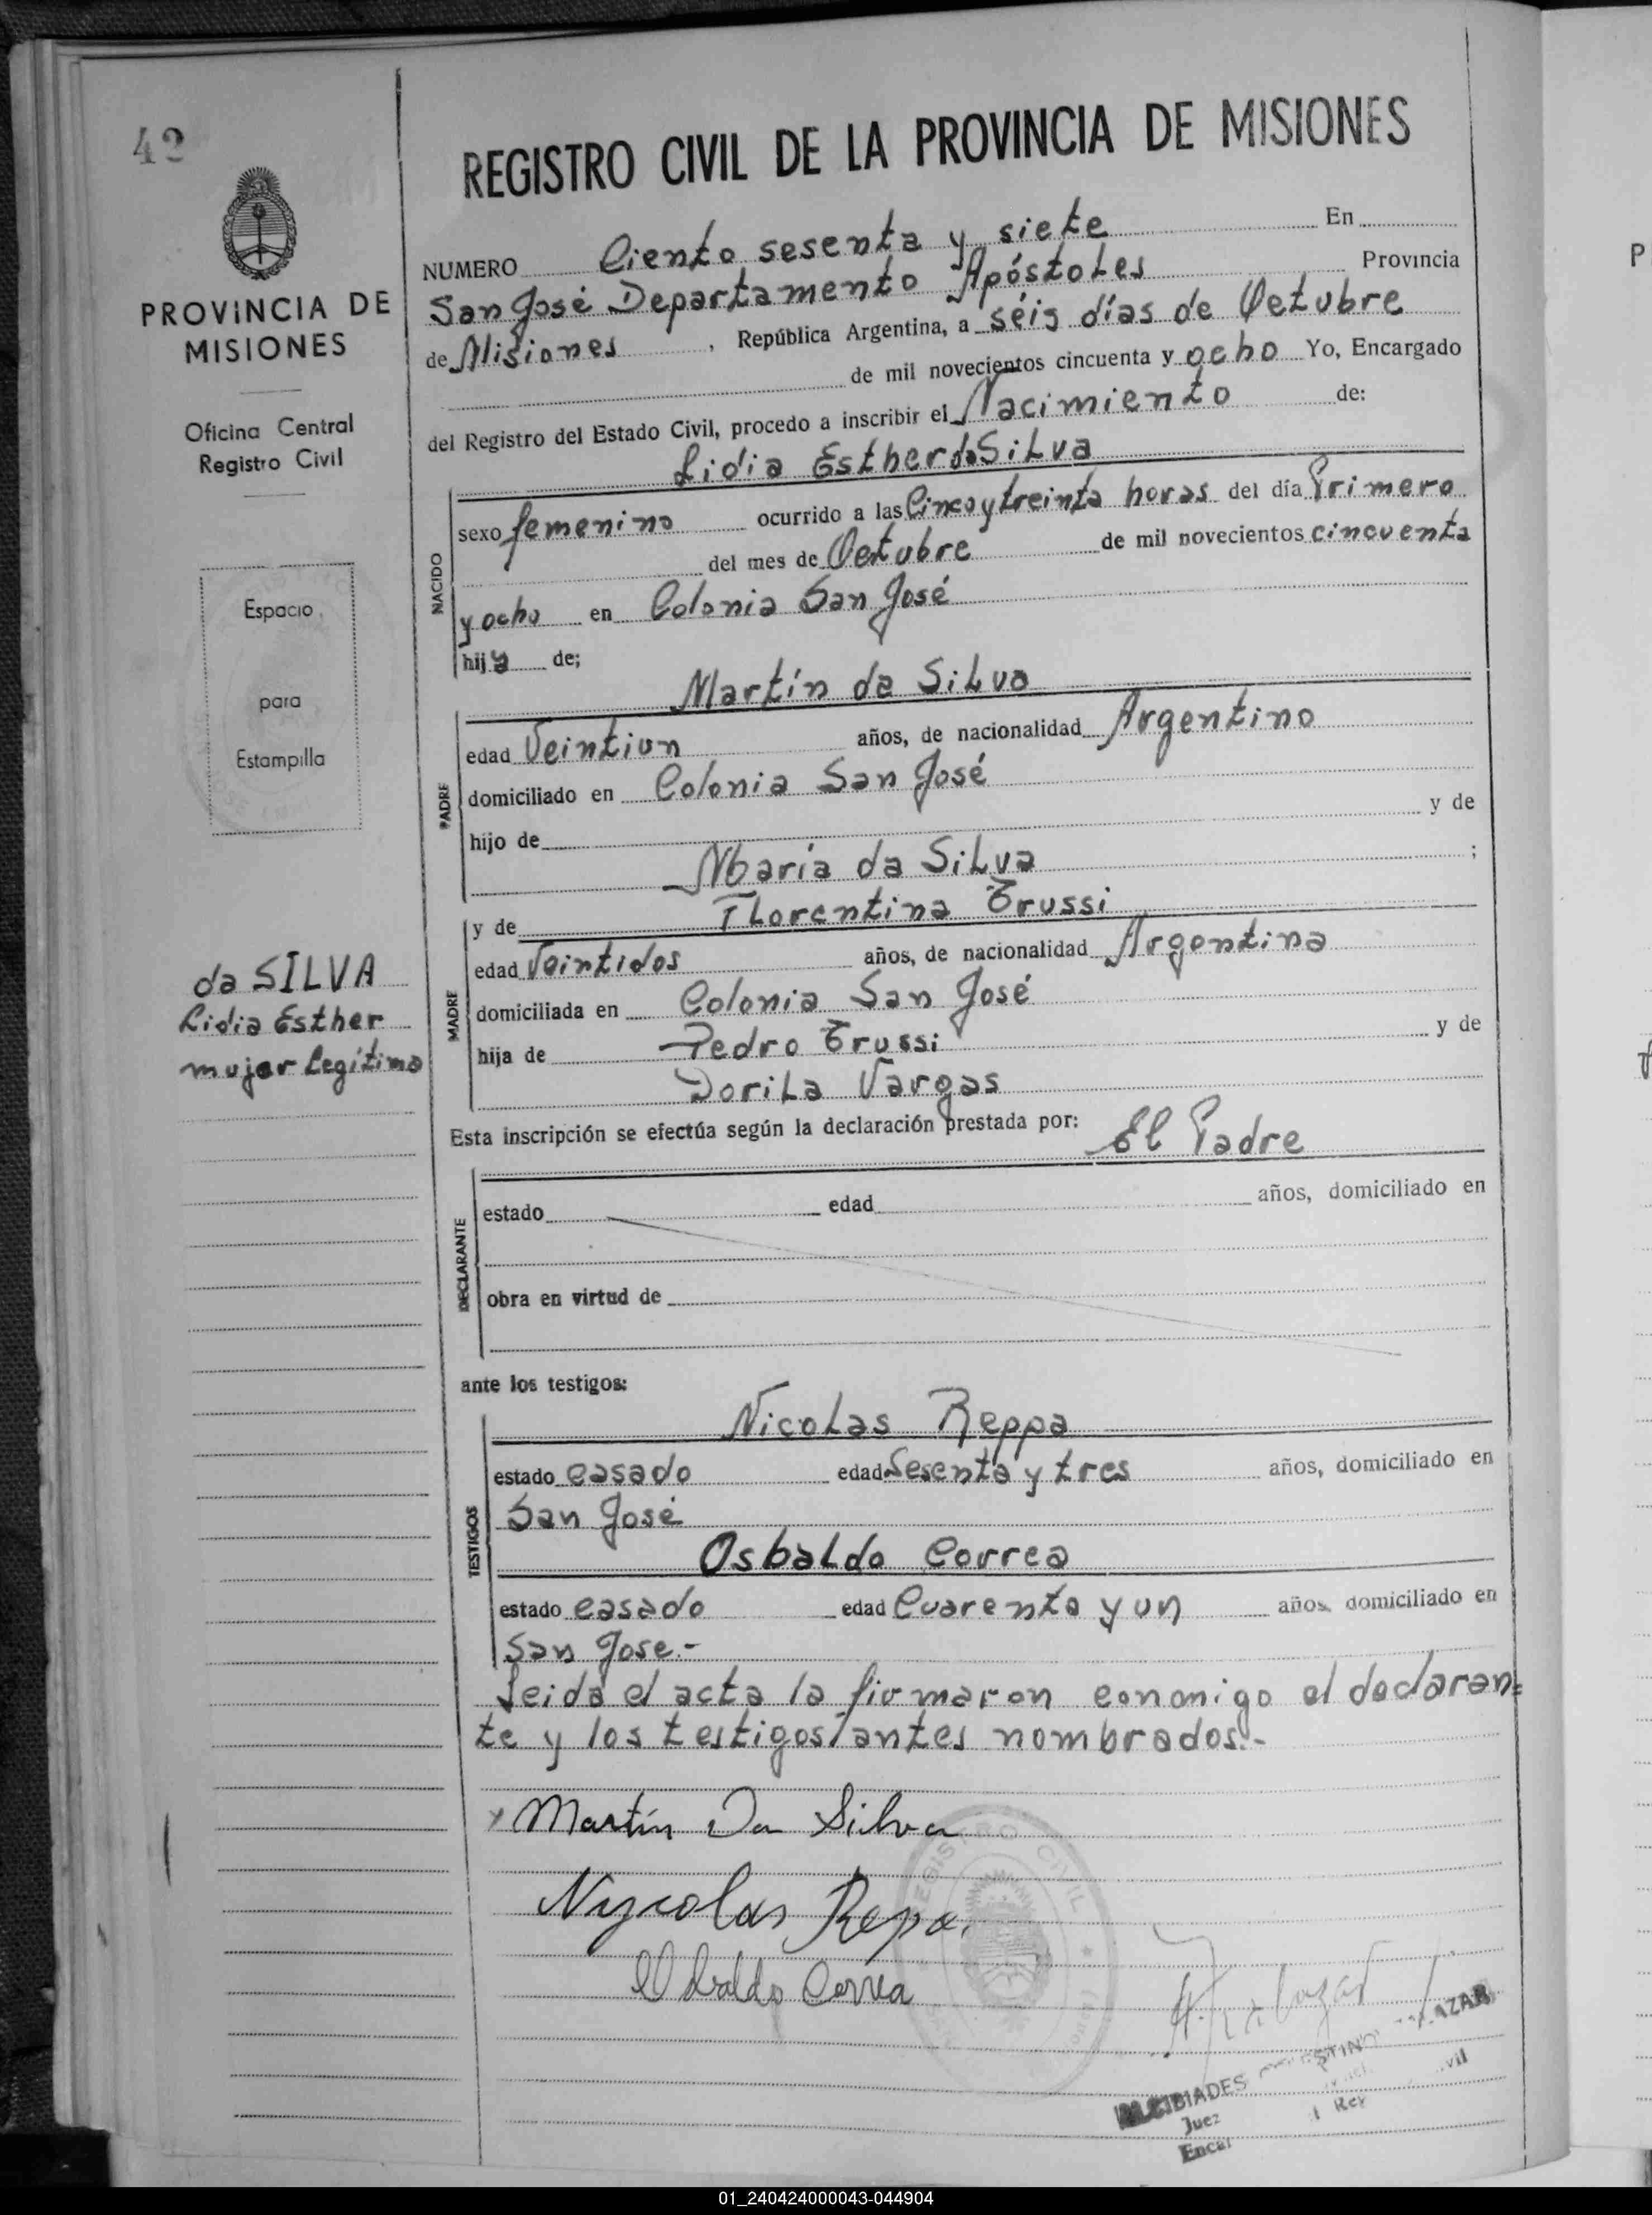 42
PROVINCIA DE
MISIONES
Oficina Central
Registro Civil
Espacio
para
Estampilla
da SILVA
Lidia Esther
mujer Legítima
REGISTRO CIVIL DE LA PROVINCIA DE MISIONES
NUMERO Ciento sesenta y siete En
San José Departamento Apóstoles Provincia
de Misiones, República Argentina, a séis días de Octubre
de mil novecientos cincuenta y ocho Yo, Encargado
del Registro del Estado Civil, procedo a inscribir el Nacimiento de:
Lidia Esther da Silva
NACIDO
sexo femenino ocurrido a las Cinco y treinta horas del día Primero
del mes de Octubre de mil novecientos cincuenta
y ocho en Colonia San José
hija de;
Martín da Silva
PADRE
edad Veintiun años, de nacionalidad Argentino
domiciliado en Colonia San José
hijo de y de
María da Silva ;
y de Florentina Trussi
MADRE
edad Veintidos años, de nacionalidad Argentina
domiciliada en Colonia San José
hija de Pedro Trussi y de
Dorila Vargas
Esta inscripción se efectúa según la declaración prestada por: El Padre
DECLARANTE
estado edad años, domiciliado en
obra en virtud de
ante los testigos:
Nicolas Reppa
TESTIGOS
estado casado edad Sesenta y tres años, domiciliado en
San José
Osbaldo Correa
estado casado edad Cuarenta y un años domiciliado en
San Jose.-
Leida el acta la firmaron conmigo el declaran=
te y los testigos antes nombrados.-
Martín Da Silva
Nycolas Repa.
Osbaldo Correa
REGISTRO CIVIL
ALCIBIADES
Juez
01_240424000043-044904